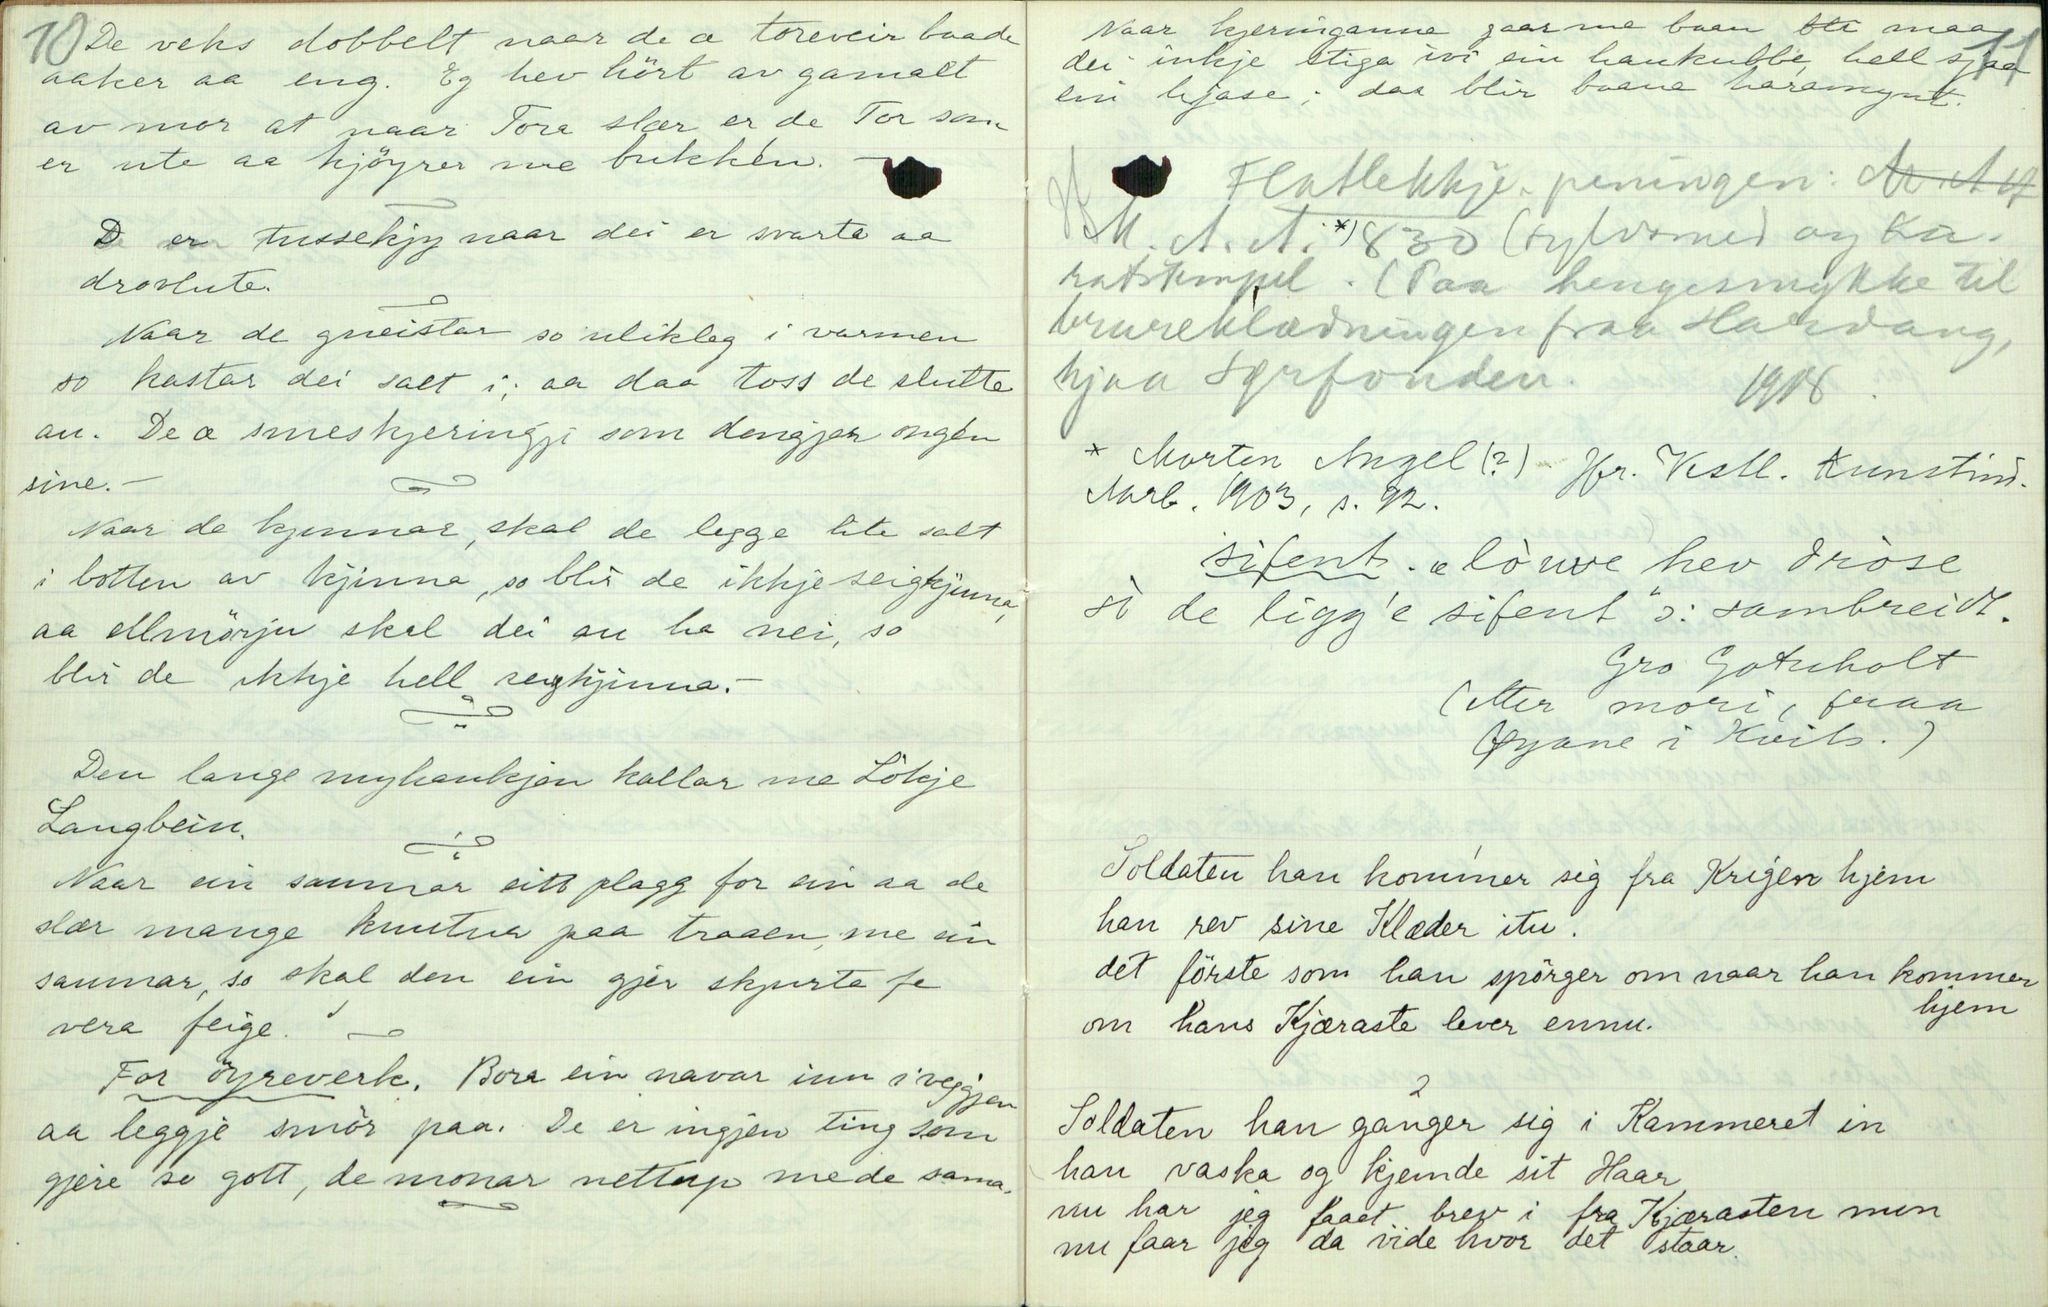 10
De veks dobbelt naar de æ toreveir baade
aaker aa eng. Eg hev hört av gamalt
av mor at naar Tora slær er de Tor som
er ute aa kjöyrer me bukken. —
D er tussekjy naar dei er svarte aa
droslute.
Naar de gneistar so ulikleg i varmen
so kastar dei salt i; aa daa toss de slutte
au. De æ smeskjeringji som dengjer ongan
sine. —
Naar de kjinnar, skal de legge lite salt
i botten av kjinna, so blir de ikkje seigkjinna,
aa ellmörju skal dei au ha nei, so
blir de ikkje hell seigkjinna. —
Den lange myhankjen kallar me Lökje
Langbein.
Naar ein saumar eitt plagg for ein aa de
slær mange knutur paa traaen, me ein
saumar, so skal den ein gjer skjurta fe
vera feige.
For öyreverk. Bora ein navar inn i veggjen
aa leggje smör paa. De er ingjen ting som
gjere so gott, de monar nettup mede sama.
11
Naar kjeringanne gaar me baan maa
dei inkje stiga ivi ein haukubbe, hell sjaa
ein hjase; daa blir baane haramynt.
Flatlekkje-peningen:
M. A. A. *) 830 (sylvsmed og Ka-
ratstempel. (Paa hengesmykke til
brureklædningen fraa Hardang,
hjaa Syrfonden. 1918.
* Morten Angel (?) Jfr. Vestl. Kunstind.
Aarb. 1903, s. 92.
sifent. "löuve hev dröse
sò de ligg'e sifent" ɔ: sambreidt.
Gro Gotuholt
(etter mori, fraa
Öyane i Kvits.)
Soldaten han kommer sig fra Krigen hjem
han rev sine Klæder itu.
det förste som han spörger om naar han kommer
hjem
om hans Kjæraste lever ennu.
2
Soldaten han ganger sig i Kammeret in
han vaska og kjemde sit Haar
nu har jeg faaet brev i fra Kjærasten min
nu faar jeg da vide hvor det staar.